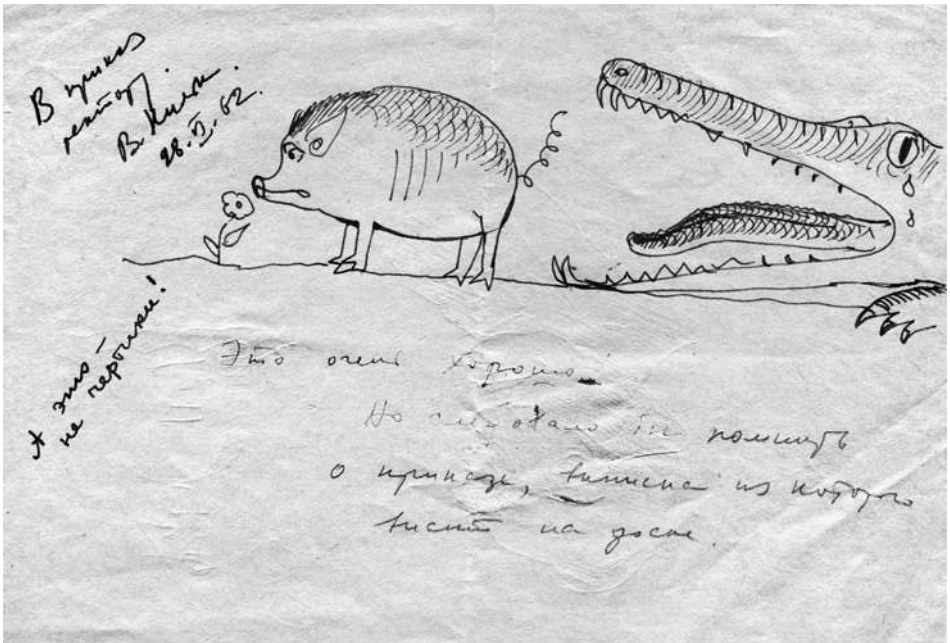 В приказ
В.
А это
не
Это очень хорошо.
Но следовало бы помнить
о приказе, выписка из которого
висит на доске.